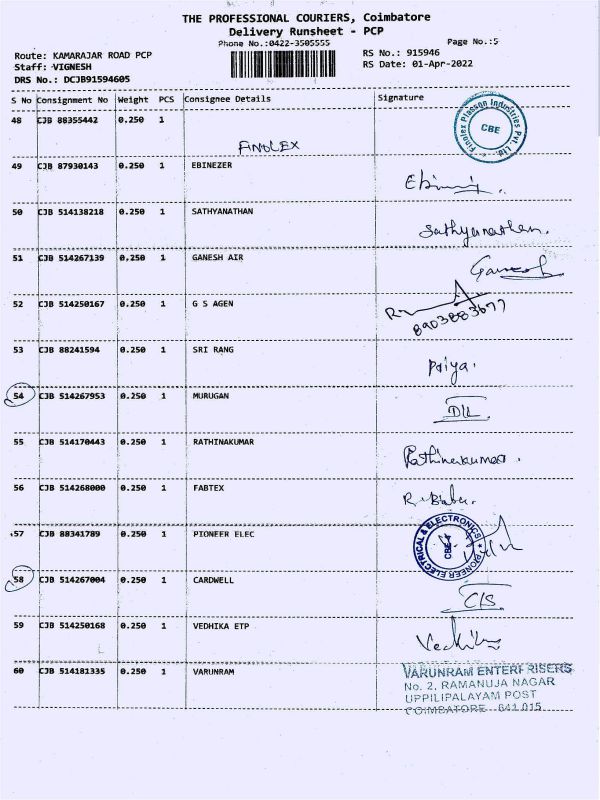 THE PROFESSIONAL COURIERS, Coimbatore
Delivery Runsheet - PCP
Phone No.:0422-3505555
Page No.:5
Route: KAMARAJAR ROAD PCP
RS No.: 915946
Staff: VIGNESH
RS Date: 01-Apr-2022
DRS No.: DCJB91594605
S No Consignment No Weight PCS Consignee Details Signature
48 CJB 88355442 0.250 1
FINOLEX
Finolex Plasson Industries Pvt. Ltd. CBE
49 CJB 87930143 0.250 1 EBINEZER
50 CJB 514138218 0.250 1 SATHYANATHAN Sathyanathan.
51 CJB 514267139 0.250 1 GANESH AIR Ganesh
52 CJB 514250167 0.250 1 G S AGEN
8903883677
53 CJB 88241594 0.250 1 SRI RANG Priya.
54 CJB 514267953 0.250 1 MURUGAN D/L
55 CJB 514170443 0.250 1 RATHINAKUMAR Rathinakumar.
56 CJB 514268000 0.250 1 FABTEX R. Babu.
57 CJB 88341789 0.250 1 PIONEER ELEC
PIONEER ELECTRICAL & ELECTRONICS
58 CJB 514267004 0.250 1 CARDWELL C/S
59 CJB 514250168 0.250 1 VEDHIKA ETP
60 CJB 514181335 0.250 1 VARUNRAM
VARUNRAM ENTERPRISERS
No. 2, RAMANUJA NAGAR
UPPILIPALAYAM POST
COIMBATORE - 641 015